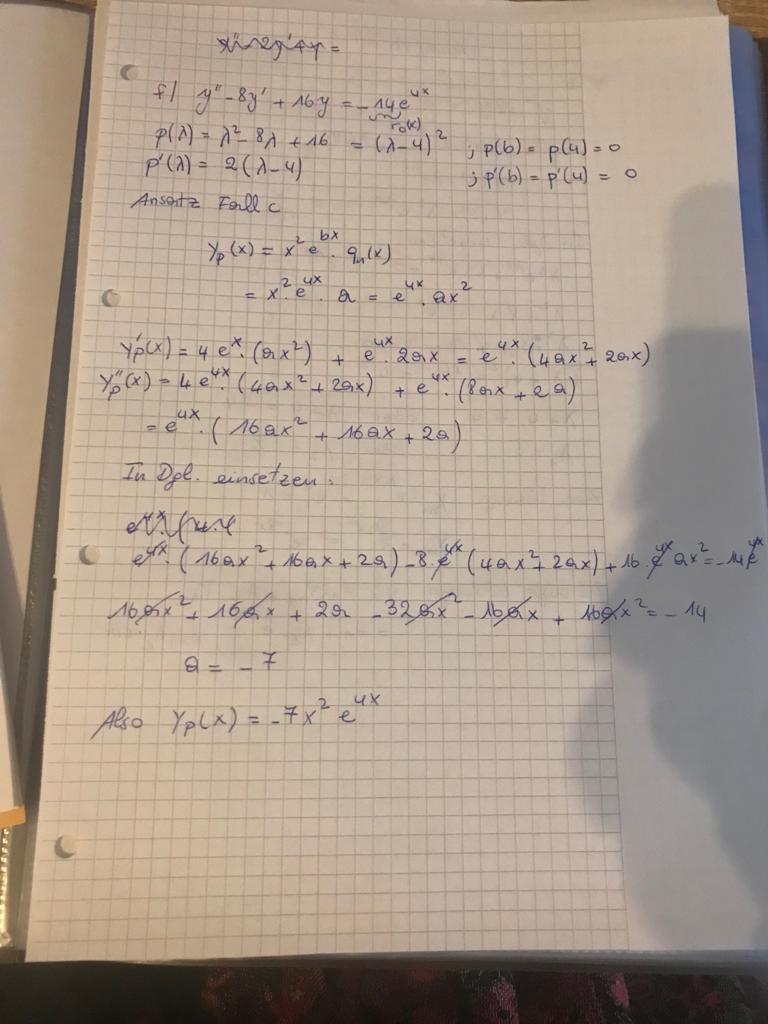 f) y'' - 8y' + 16y = -14e^{4x}
r_0(x)
p(λ) = λ² - 8λ + 16 = (λ-4)² ; p(b) = p(4) = 0
p'(λ) = 2(λ-4) ; p'(b) = p'(4) = 0
Ansatz Fall c
y_p(x) = x² e^{bx} · q_n(x)
= x² · e^{4x} · a = e^{4x} · ax²
y_p'(x) = 4e^x · (ax²) + e^{4x} · 2ax = e^{4x} · (4ax² + 2ax)
y_p''(x) = 4e^{4x} · (4ax² + 2ax) + e^{4x} · (8ax + 2a)
= e^{4x} · (16ax² + 16ax + 2a)
In Dgl. einsetzen:
e^{4x} · (16ax² + 16ax + 2a) - 8 · e^{4x} (4ax² + 2ax) + 16 · e^{4x} ax² = -14e^{4x}
16ax² + 16ax + 2a - 32ax² - 16ax + 16ax² = -14
a = -7
Also y_p(x) = -7x² e^{4x}